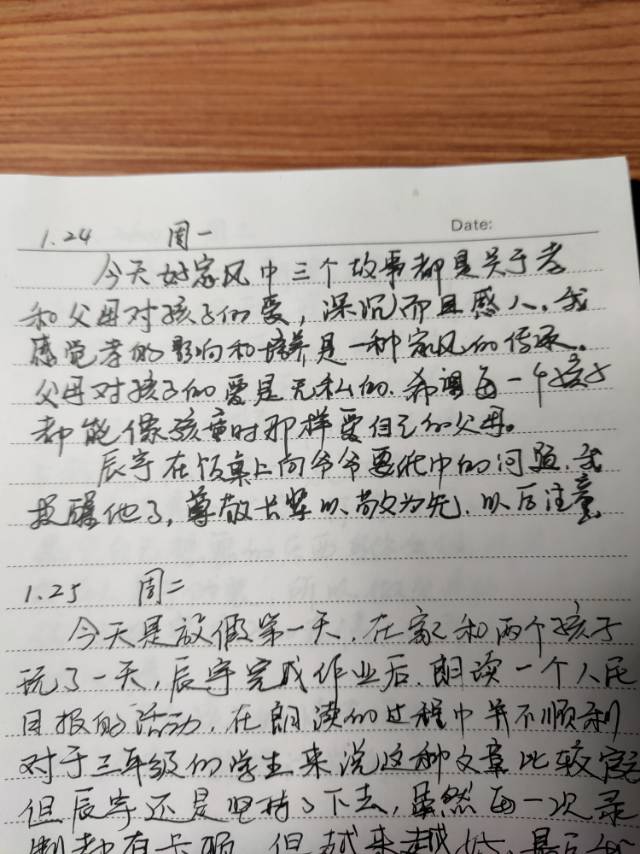 Date:
1.24 周一
今天好家风中三个故事都是关于孝
和父母对孩子们的爱，深沉而且感人。我
感觉孝的影响和培养是一种家风的传承。
父母对孩子的爱是无私的.希望每一个孩子
都能像孩童时那样爱自己的父母。
辰宇在饭桌上向爷爷要碗中的问题.我
提醒他了,尊敬长辈以敬为先.以后注意
1.25 周二
今天是放假第一天.在家和两个孩子
玩了一天,辰宇完成作业后.朗读一个人民
日报的活动.在朗读的过程中并不顺利
对于三年级的学生来说这种文章比较
但辰宇还是坚持了下去,虽然每一次录
制都有卡顿,但越来越好.最后